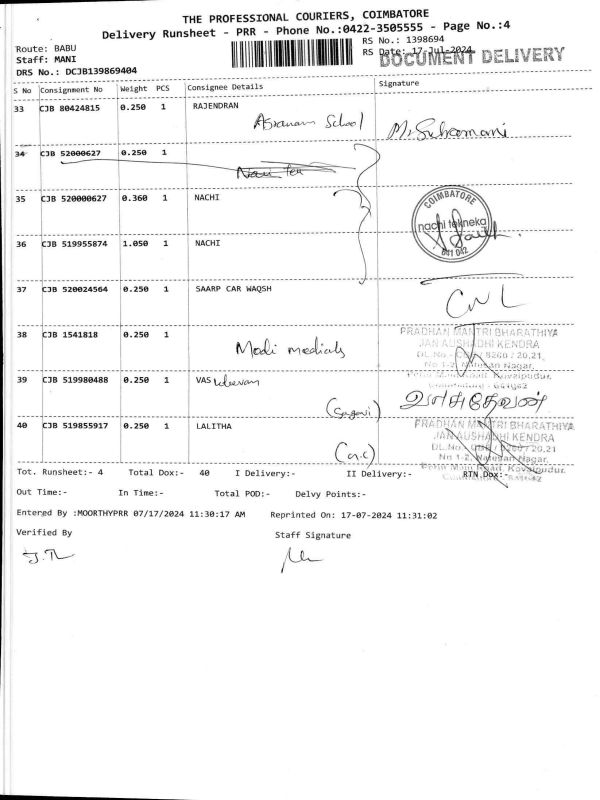 THE PROFESSIONAL COURIERS, COIMBATORE
Delivery Runsheet - PRR - Phone No.:0422-3505555 - Page No.:4
Route: BABU
RS No.: 1398694
Staff: MANI
RS Date: 17-Jul-2024
DOCUMENT DELIVERY
DRS No.: DCJB139869404
S No Consignment No Weight PCS Consignee Details Signature
33 CJB 80424815 0.250 1 RAJENDRAN
School
34 CJB 52000627 0.250 1
35 CJB 520000627 0.360 1 NACHI
COIMBATORE
nachi tekneka
641 042
36 CJB 519955874 1.050 1 NACHI
37 CJB 520024564 0.250 1 SAARP CAR WAQSH
38 CJB 1541818 0.250 1
Modi medicals
PRADHAN MANTRI BHARATHIYA
JAN AUSHADHI KENDRA
39 CJB 519980488 0.250 1 VAS
வாசுதேவன்
40 CJB 519855917 0.250 1 LALITHA
PRADHAN MANTRI BHARATHIYA
JAN AUSHADHI KENDRA
Tot. Runsheet:- 4 Total Dox:- 40 I Delivery:- II Delivery:- RTN Dox:-
Out Time:- In Time:- Total POD:- Delvy Points:-
Entered By :MOORTHYPRR 07/17/2024 11:30:17 AM Reprinted On: 17-07-2024 11:31:02
Verified By
Staff Signature